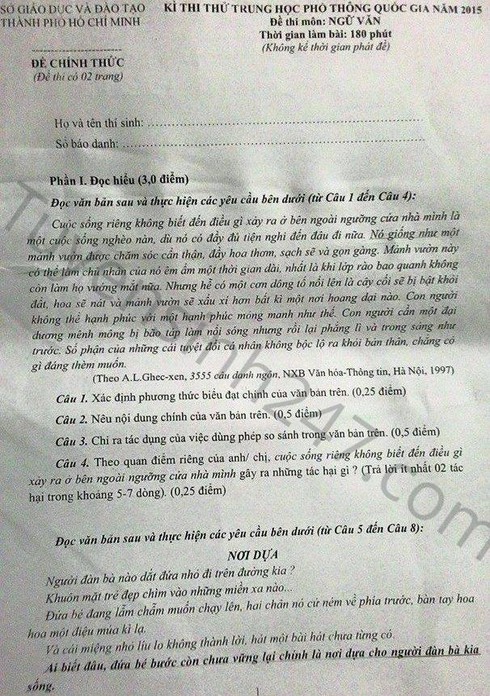 SỞ GIÁO DỤC VÀ ĐÀO TẠO
THÀNH PHỐ HỒ CHÍ MINH
KÌ THI THỬ TRUNG HỌC PHỔ THÔNG QUỐC GIA NĂM 2015
Đề thi môn: NGỮ VĂN
Thời gian làm bài: 180 phút
(Không kể thời gian phát đề)
ĐỀ CHÍNH THỨC
(Đề thi có 02 trang)
Họ và tên thí sinh:
Số báo danh:
Phần I. Đọc hiểu (3,0 điểm)
Đọc văn bản sau và thực hiện các yêu cầu bên dưới (từ Câu 1 đến Câu 4):
Cuộc sống riêng không biết đến điều gì xảy ra ở bên ngoài ngưỡng cửa nhà mình là
một cuộc sống nghèo nàn, dù nó có đầy đủ tiện nghi đến đâu đi nữa. Nó giống như một
mảnh vườn được chăm sóc cẩn thận, đầy hoa thơm, sạch sẽ và gọn gàng. Mảnh vườn này
có thể làm chủ nhân của nó êm ấm một thời gian dài, nhất là khi lớp rào bao quanh không
còn làm họ vướng mắt nữa. Nhưng hễ có một cơn dông tố nổi lên là cây cối sẽ bị bật khỏi
đất, hoa sẽ nát và mảnh vườn sẽ xấu xí hơn bất kì một nơi hoang dại nào. Con người
không thể hạnh phúc với một hạnh phúc mong manh như thế. Con người cần một đại
dương mênh mông bị bão táp làm nổi sóng nhưng rồi lại phẳng lì và trong sáng như
trước. Số phận của những cái tuyệt đối cá nhân không bộc lộ ra khỏi bản thân, chẳng có
gì đáng thèm muốn.
(Theo A.L.Ghec-xen, 3555 câu danh ngôn, NXB Văn hóa-Thông tin, Hà Nội, 1997)
Câu 1. Xác định phương thức biểu đạt chính của văn bản trên. (0,25 điểm)
Câu 2. Nêu nội dung chính của văn bản trên. (0,5 điểm)
Câu 3. Chỉ ra tác dụng của việc dùng phép so sánh trong văn bản trên. (0,5 điểm)
Câu 4. Theo quan điểm riêng của anh/ chị, cuộc sống riêng không biết đến điều gì
xảy ra ở bên ngoài ngưỡng cửa nhà mình gây ra những tác hại gì ? (Trả lời ít nhất 02 tác
hại trong khoảng 5-7 dòng). (0,25 điểm)
Đọc văn bản sau và thực hiện các yêu cầu bên dưới (từ Câu 5 đến Câu 8):
NƠI DỰA
Người đàn bà nào dắt đứa nhỏ đi trên đường kia ?
Khuôn mặt trẻ đẹp chìm vào những miền xa nào...
Đứa bé đang lẫm chẫm muốn chạy lên, hai chân nó cứ ném về phía trước, bàn tay hoa
hoa một điệu múa kì lạ.
Và cái miệng nhỏ líu lo không thành lời, hát một bài hát chưa từng có.
Ai biết đâu, đứa bé bước còn chưa vững lại chính là nơi dựa cho người đàn bà kia
sống.
1
Tuyensinh247.com